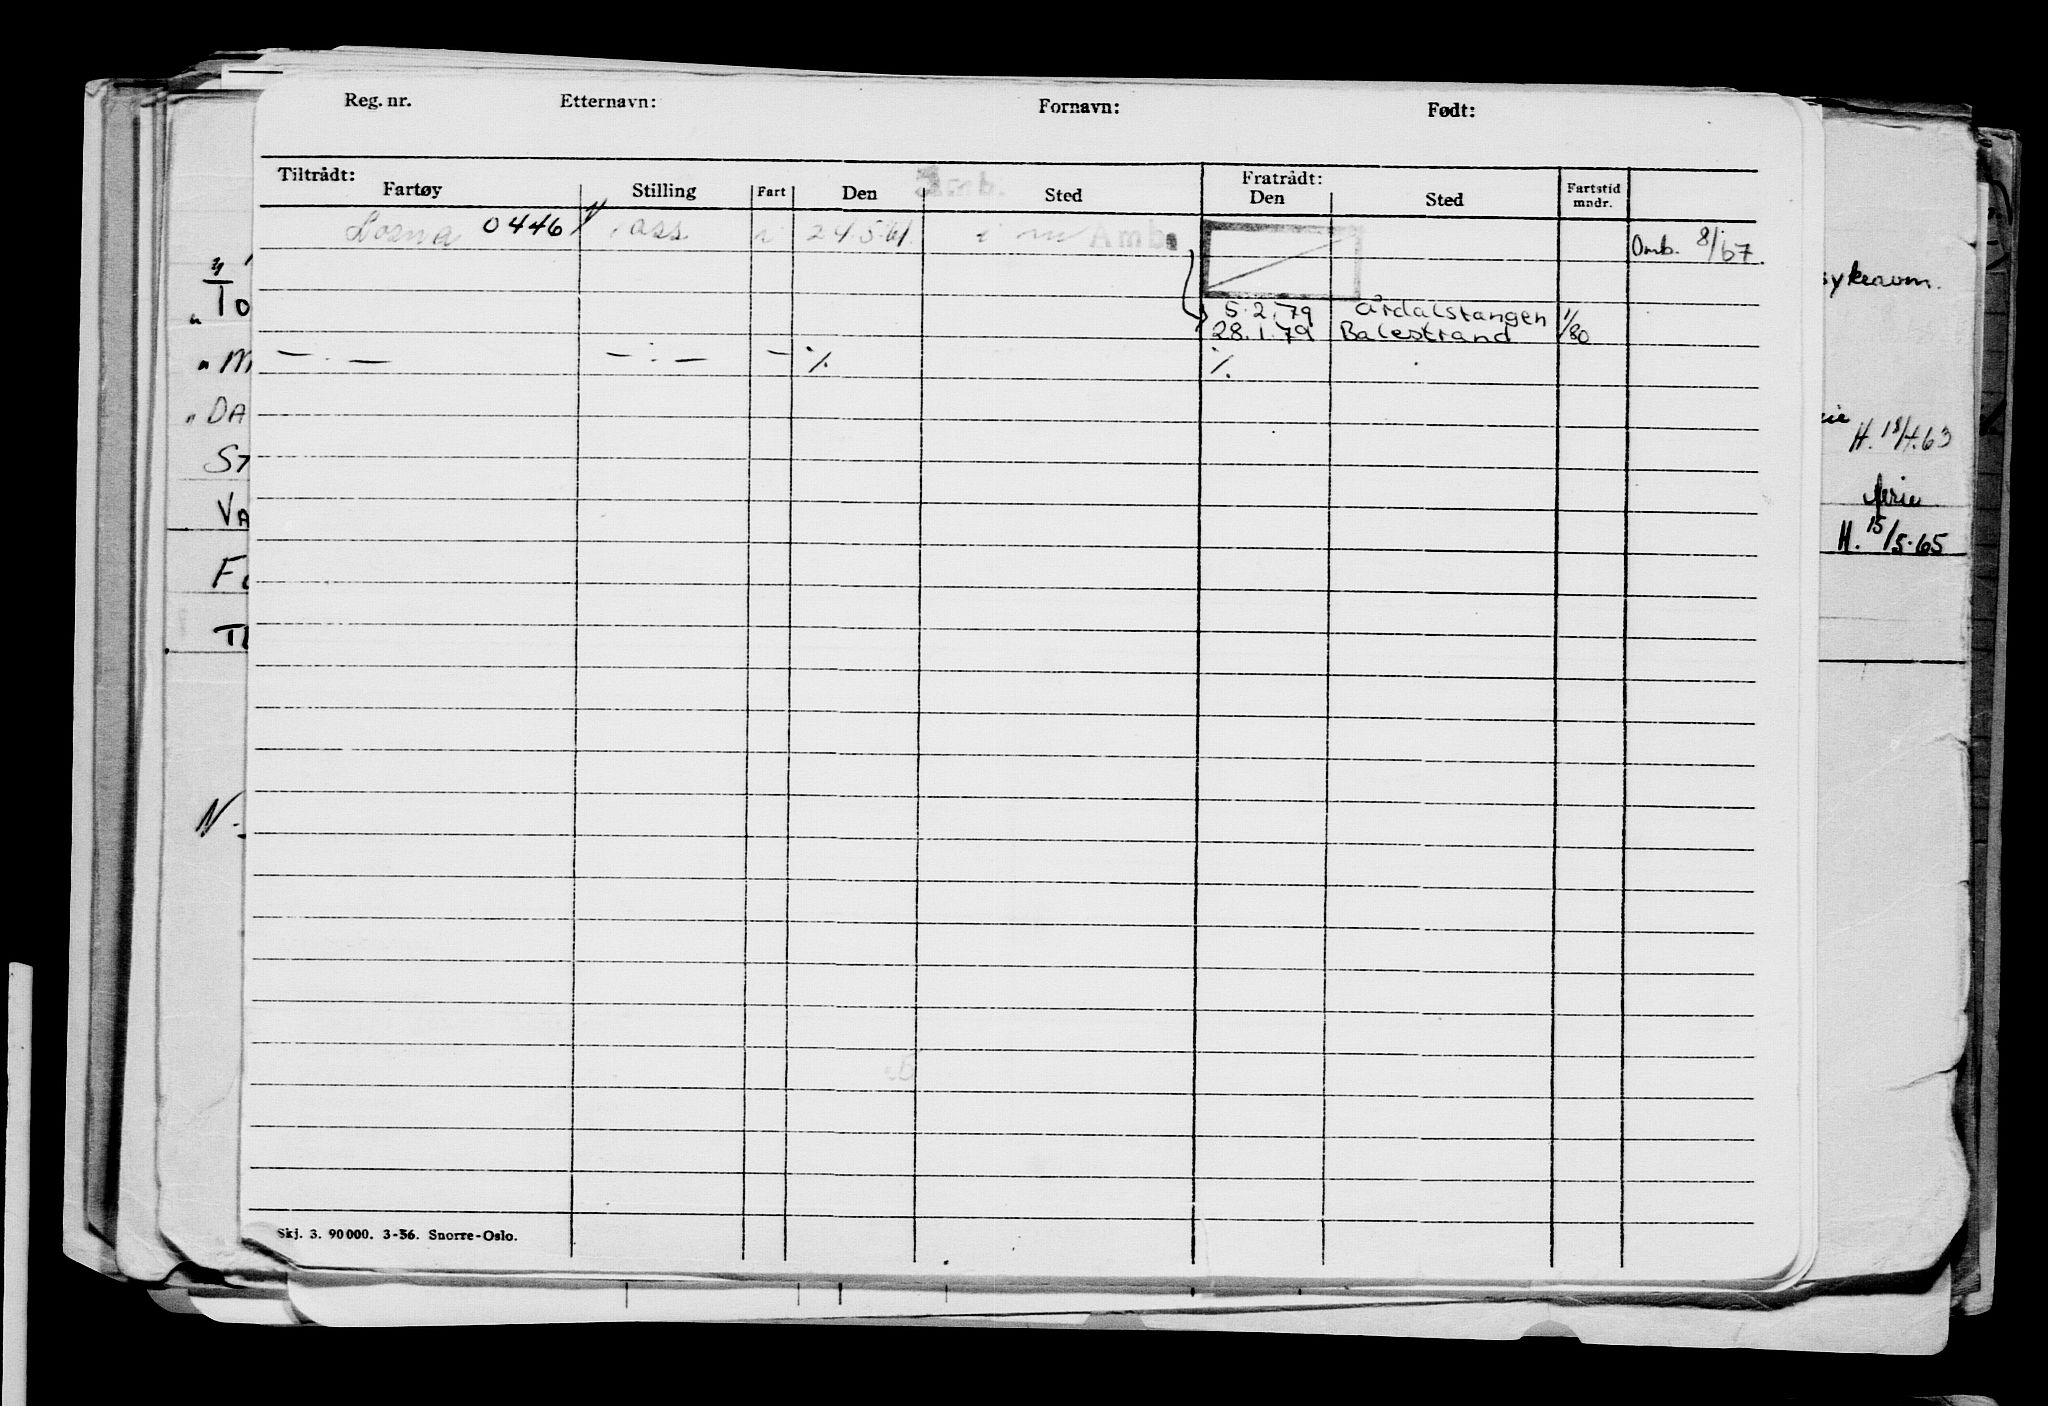 Reg. nr. Etternavn: Fornavn: Født:
Tiltrådt: Fratrådt:
Fartøy Stilling Fart Den Sted Den Sted Fartstid mndr.
Losna 0446 ass i 24.5.61 Amb. Omb. 8/67.
5.2.79 Årdalstangen
28.1.79 Balestrand 1/80
— . — — . — — ./. ./.
Skj. 3. 90000. 3-56. Snorre-Oslo.
To
M
DA
ST
VA
N
sykeavm.
H. 18/4.63
ferie
H. 15/5.65